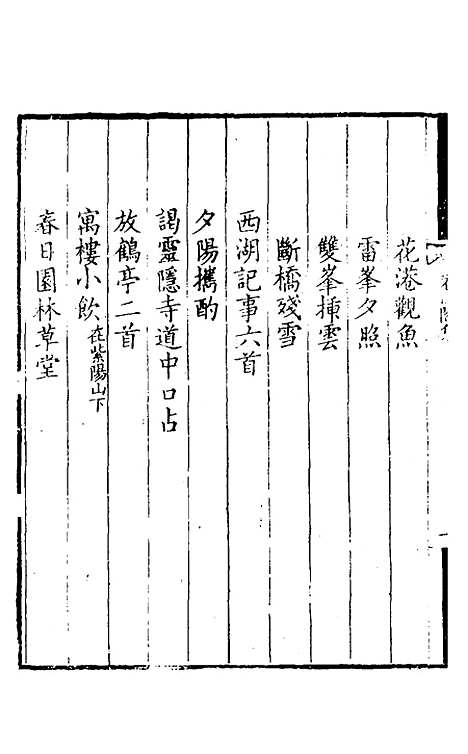 花港觀魚
雷峯夕照
雙峯揷雲
斷橋殘雪
西湖記事六首
夕陽攜酌
謁靈隱寺道中口占
放鶴亭二首
寓樓小飲在紫陽山下
春日園林草堂